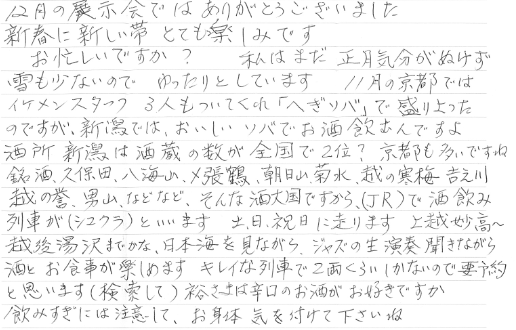 12月の展示会ではありがとうございました
新春に新しい帯 とても楽しみです
お忙しいですか? 私はまだ 正月気分がぬけず
雪も少ないので ゆったりとしています 11月の京都では
イケメンスタッフ 3人もついてくれ「へぎソバ」で盛り上った
のですが、新潟では、おいしいソバでお酒飲むんですよ
酒所 新潟は酒蔵の数が全国で2位? 京都も多いですね
銘酒、久保田、八海山、〆張鶴、朝日山、菊水、越の寒梅 吉乃川
越の誉、男山、などなど、そんな酒大国ですから、(JR)で酒飲み
列車が(シュクラ)といいます 土、日、祝日に走ります 上越妙高~
越後湯沢までかな、日本海を見ながら、ジャズの生演奏聞きながら
酒とお食事が楽しめます キレイな列車で2両くらいしかないので要予約
と思います(検索して) 裕さまは辛口のお酒がお好きですか
飲みすぎには注意して、お身体 気を付けて下さいね